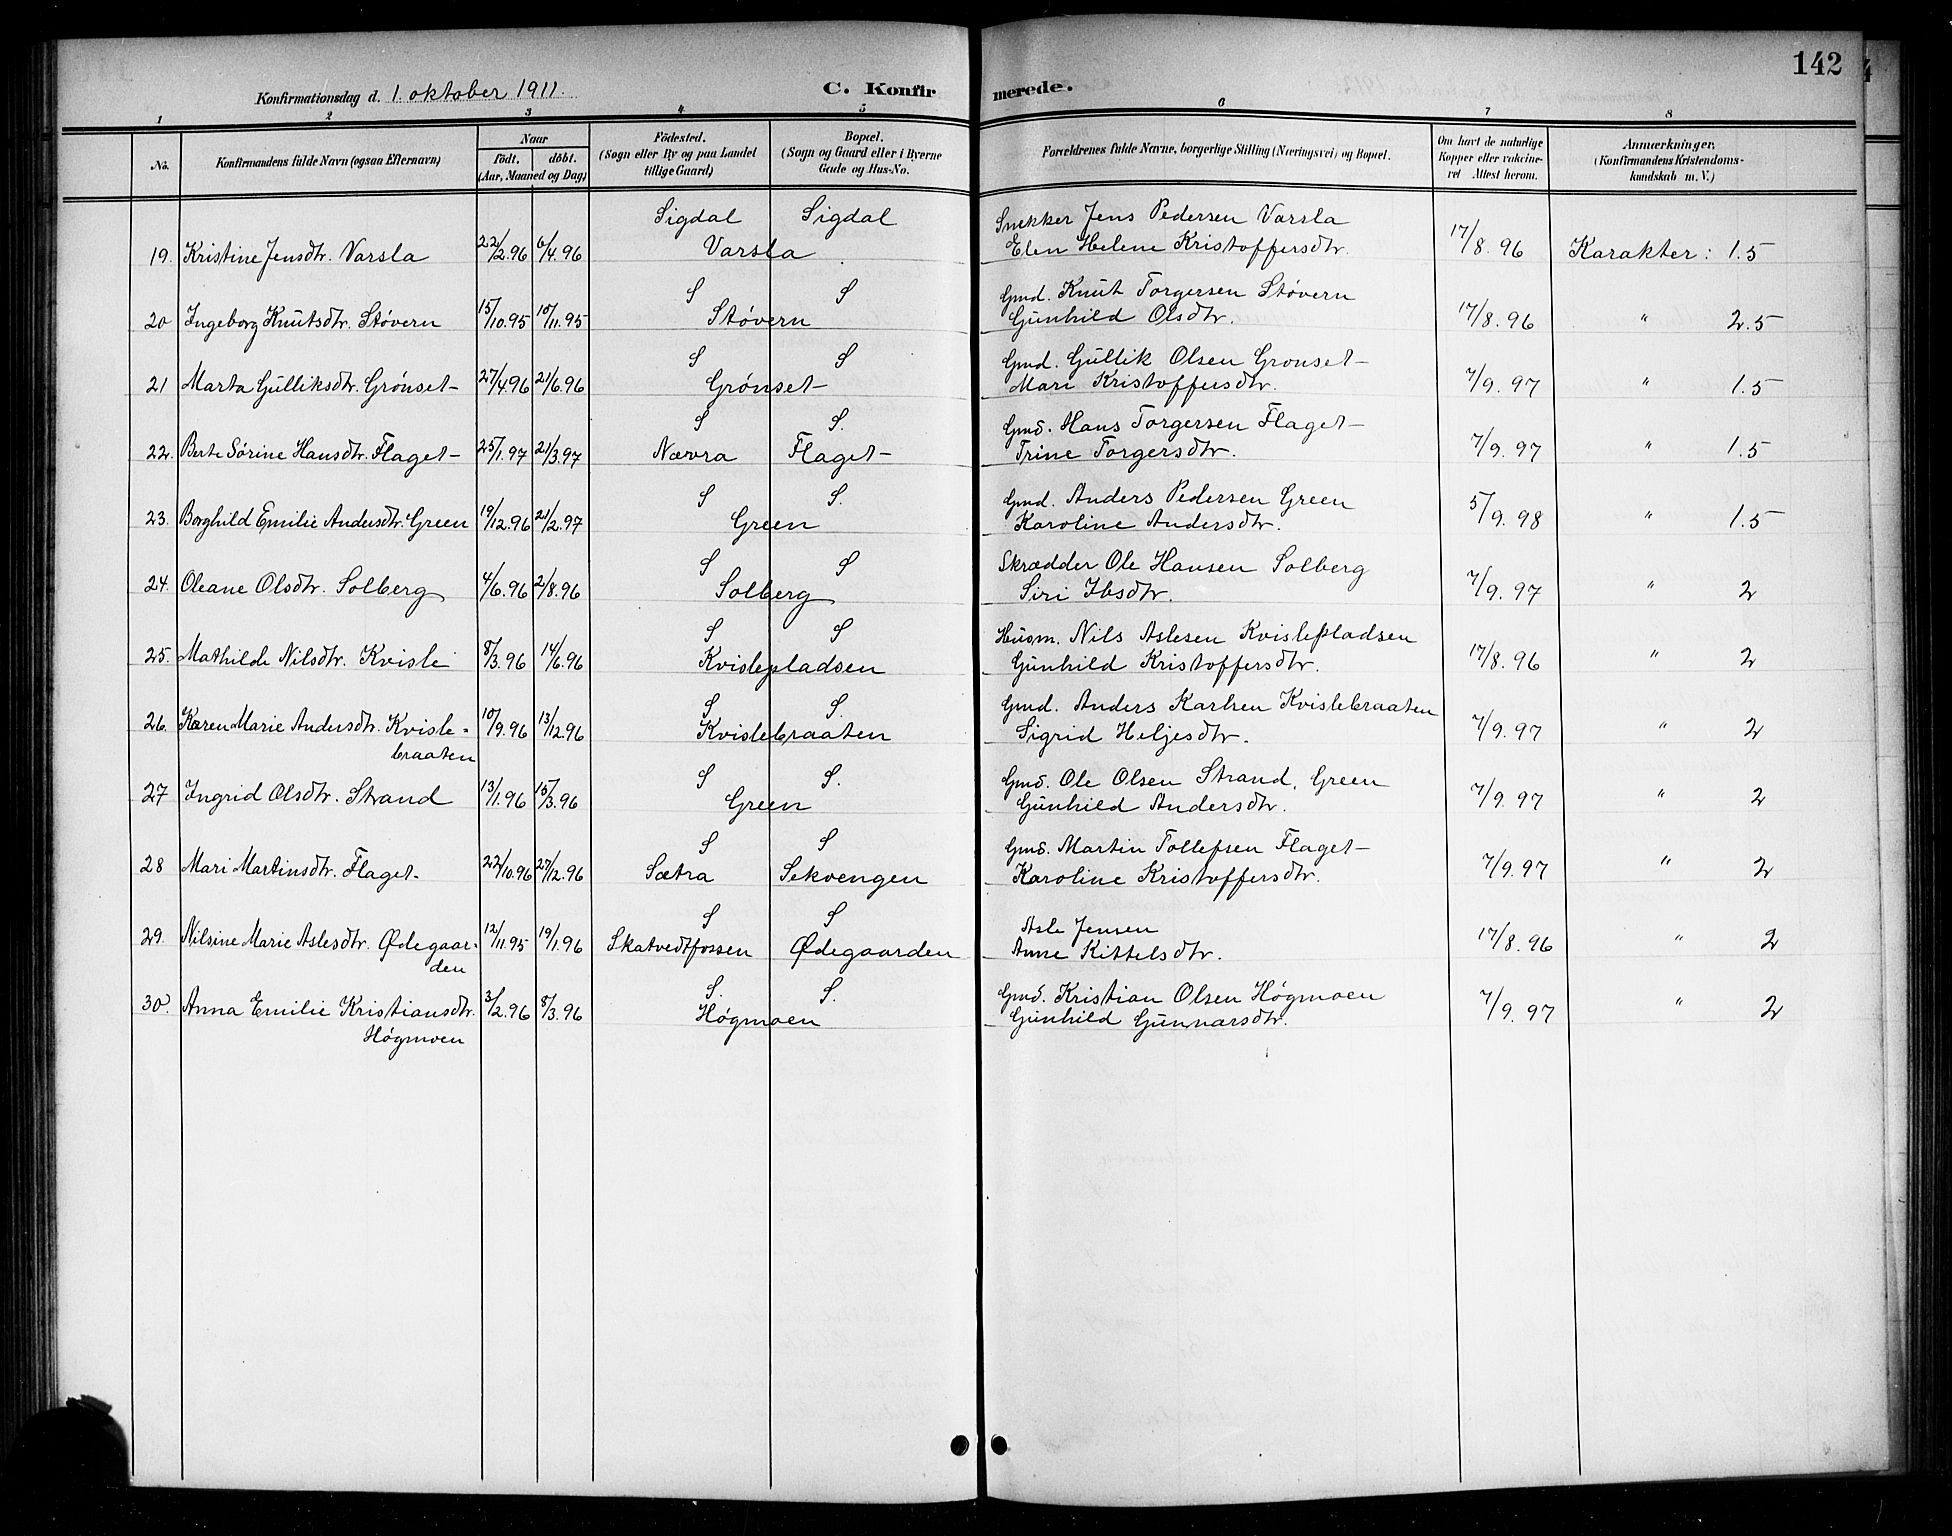 Konfirmationsdag d. 1. oktober 1911. C. Konfirmerede. 142
1 2 3 4 5 6 7 8
No. Konfirmandens fulde Navn (ogsaa Efternavn) Naar født. døbt. (Aar, Maaned og Dag) Fødested. (Sogn eller By og paa Landet tillige Gaard) Bopæl. (Sogn og Gaard eller i Byerne Gade og Hus-No. Forældrenes fulde Navne, borgerlige Stilling (Næringsvei) og Bopæl. Om havt de naturlige Kopper eller vakcineret Attest herom. Anmærkninger. (Konfirmandens Kristendomskundskab m. V.)
Sigdal Sigdal Snekker Jens Pedersen Varsla
19. Kristine Jensdtr. Varsla 22/2.96 6/4.96 Varsla Elen Helene Kristoffersdtr. 17/8.96 Karakter: 1.5
S S Gmd. Knut Torgersen Støvern
20 Ingeborg Knutsdtr. Støvern 15/10.95 10/11.95 Støvern Gunhild Olsdtr. 17/8.96 " 2.5
S S Gmd. Gullik Olsen Grønset
21 Marta Gulliksdtr. Grønset 27/4.96 21/6.96 Grønset Mari Kristoffersdtr. 7/9.97 " 1.5
S S. Gmd. Hans Torgersen Flaget
22. Berte Sørine Hansdtr. Flaget 25/1.97 21/3.97 Nævra Flaget Trine Torgersdtr. 7/9.97 " 1.5
S S. Gmd. Anders Pedersen Green
23. Borghild Emilie Andersdtr. Green 19/12.96 21/2.97 Green Karoline Andersdtr. 5/9.98 " 1.5
S S Skrædder Ole Hansen Solberg
24. Oleane Olsdtr. Solberg 4/6.96 2/8.96 Solberg Siri Ibsdtr. 7/9.97 " 2
S S Husm. Nils Aslesen Kvislepladsen
25. Mathilde Nilsdtr. Kvisle 8/3.96 14/6.96 Kvislepladsen Gunhild Kristoffersdtr. 17/8.96 " 2
S S. Gmd. Anders Karlsen Kvislebraaten
26. Karen Marie Andersdtr. Kvisle- 10/9.96 13/12.96 Kvislebraaten Sigrid Heljesdtr. 7/9.97 " 2
braaten
S S. Gmd. Ole Olsen Strand, Green
27 Ingrid Olsdtr. Strand 13/1.96 15/3.96 Green Gunhild Andersdtr. 7/9.97 " 2
S S Gmd. Martin Tollefsen Flaget
28 Mari Martinsdtr. Flaget. 22/10.96 27/12.96 Sætra Sekvengen Karoline Kristoffersdtr. 7/9.97 " 2
S S Asle Jensen
29. Nilsine Marie Aslesdtr. Ødegaar- 12/11.95 19/1.96 Skatvedtfossen Ødegaarden Anne Kittelsdtr. 17/8.96 " 2
den
S. S. Gmd. Kristian Olsen Høgmoen
30. Anna Emilie Kristiansdtr. 3/2.96 8/3.96 Høgmoen Gunhild Gunnarsdtr. 7/9.97 " 2
Høgmoen